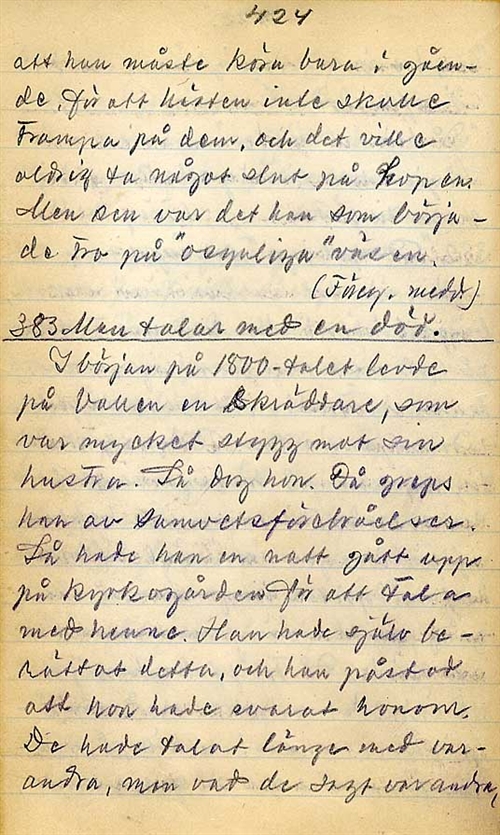 424
att han måste köra bara i gåen-
de, för att hästen inte skulle
trampa på dem, och det ville
aldrig ta något slut på hopen.
Men sen var det han som börja-
de tro på "osynliga" väsen.
(Föreg. medd)
383 Man talar med en död.
I början på 1800-talet levde
på Vallen en Skräddare, som
var mycket stygg mot sin
hustru. Så dog hon. Då greps
han av samvetsförebråelser.
Så hade han en natt gått upp
på kyrkogården för att tala
med henne. Han hade själv be-
rättat detta, och han påstod
att hon hade svarat honom.
De hade talat länge med var-
andra, men vad de sagt varandra,